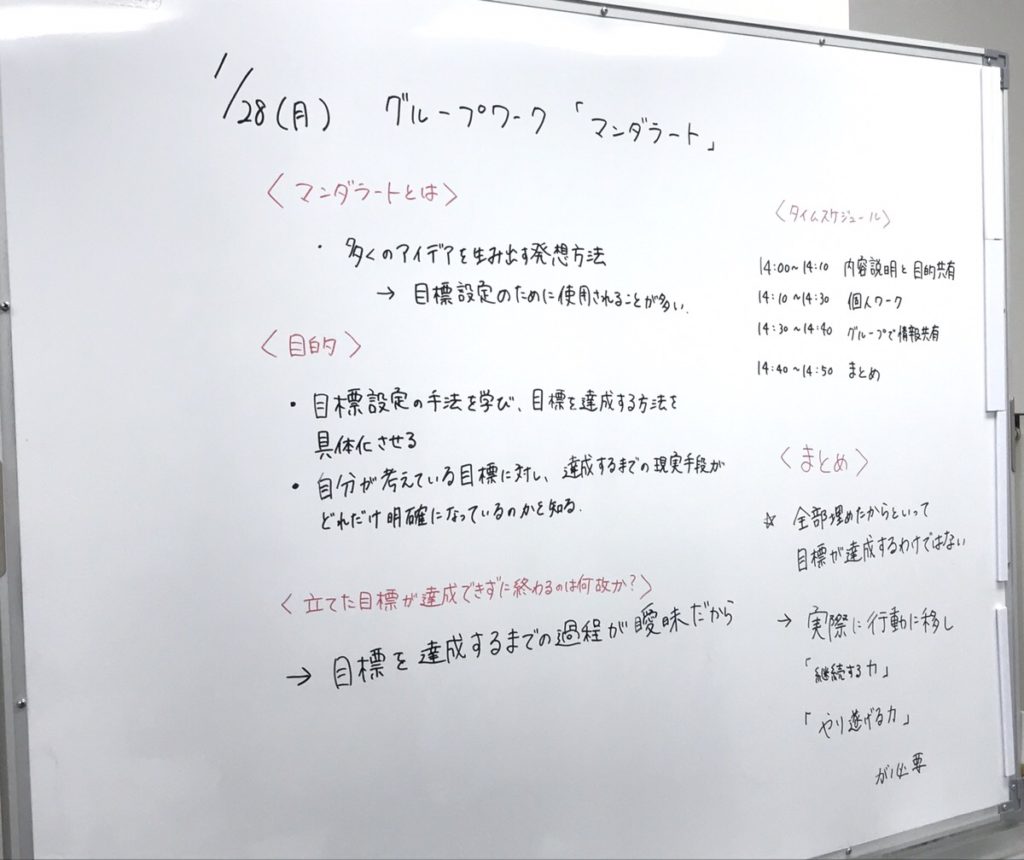 1/28(月) グループワーク「マンダラート」
〈マンダラートとは〉
・多くのアイデアを生み出す発想方法
→ 目標設定のために使用されることが多い.
〈目的〉
・目標設定の手法を学び、目標を達成する方法を
具体化させる
・自分が考えている目標に対し、達成するまでの現実手段が
どれだけ明確になっているのかを知る.
〈立てた目標が達成できずに終わるのは何故か?〉
→ 目標を達成するまでの過程が曖昧だから
〈タイムスケジュール〉
14:00~14:10 内容説明と目的共有
14:10~14:30 個人ワーク
14:30~14:40 グループで情報共有
14:40~14:50 まとめ
〈まとめ〉
☆ 全部埋めたからといって
目標が達成するわけではない
→ 実際に行動に移し
「継続する力」
「やり遂げる力」
が必要